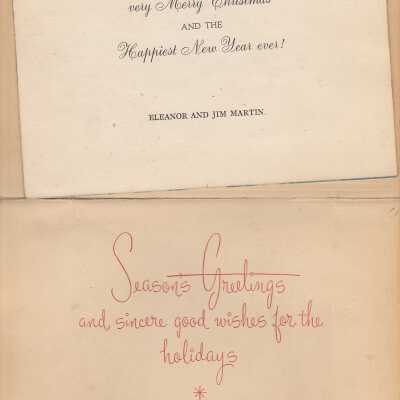 very Merry Christmas
AND THE
Happiest New Year ever!
ELEANOR AND JIM MARTIN.
Season's Greetings
and sincere good wishes for the
holidays